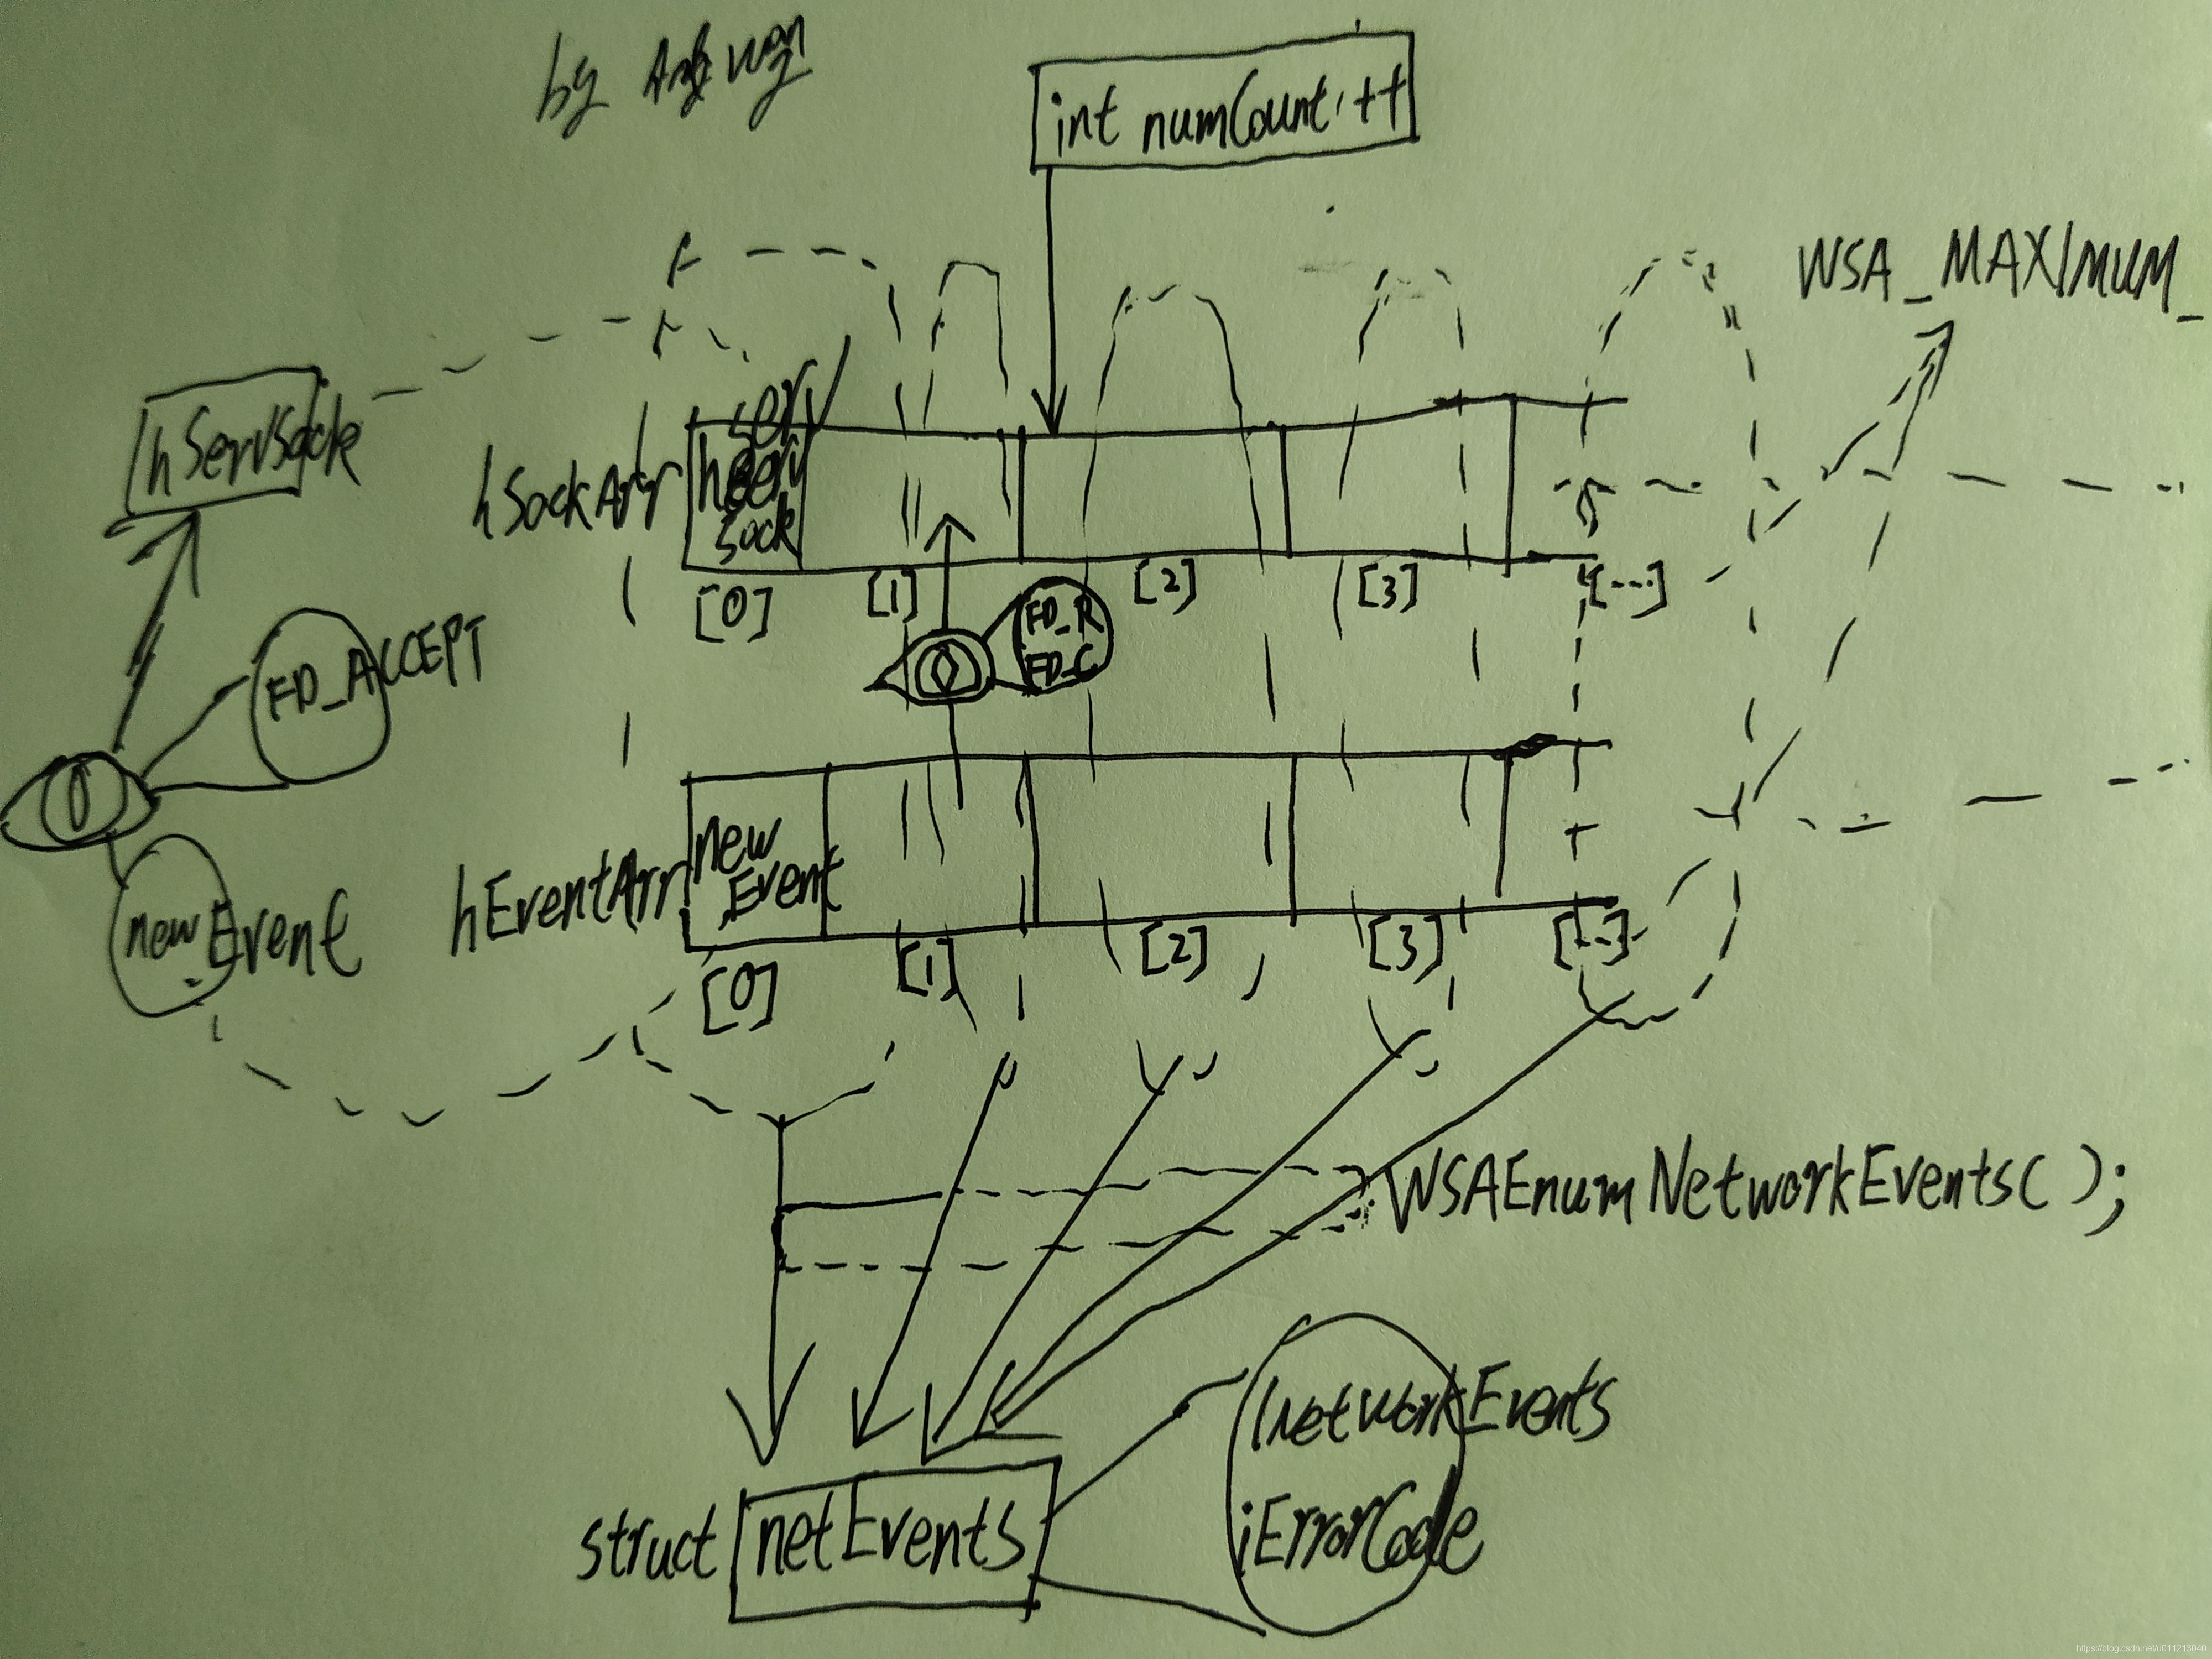 by
int numCount++
WSA_MAXIMUM_
hServSock
hSockArr
serv
sock
[0]
[1]
[2]
[3]
[...]
FD_ACCEPT
FD_R
FD_C
newEvent
hEventArr
new
Event
[0]
[1]
[2]
[3]
[...]
WSAEnumNetworkEvents( );
lNetworkEvents
iErrorCode
struct netEvents
https://blog.csdn.net/u011213040